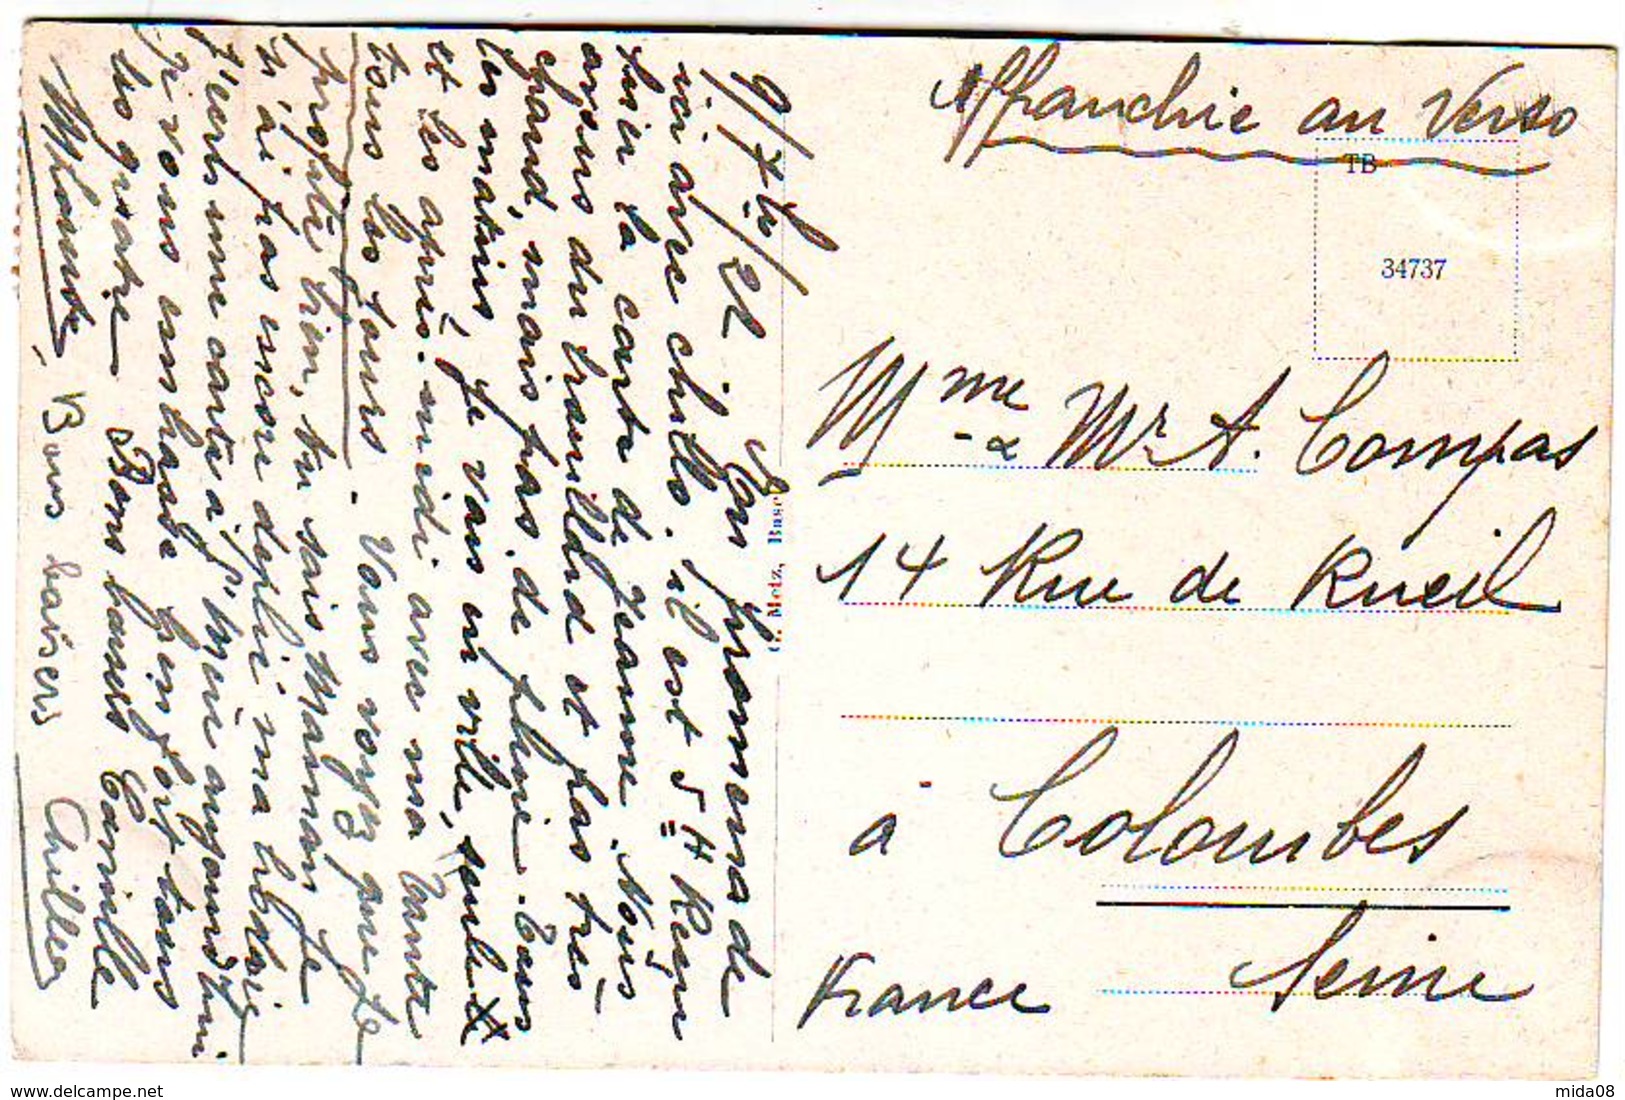 9/7bre/21. Son promenade
rivière chillo. il est 5 H Reçu
hier ta carte de Jeanne. Nous
avons du brouillard et pas très
chaud, mais pas de pluie. Tous
les matins je vais en ville, seule
et les après-midi avec ma tante
tous les jours. Vous voyez que je
profite bien, tu sais Maman je
n'ai pas encore déplié ma liseuse
J'écris une carte à aujourd'hui
je vous embrasse bien fort tous
les quatre Bons baisers Camille
Blanche, Bons baisers Achille
Affranchie au Verso
TB
34737
G. Metz, Basel
Mme & Mr A. Compas
14 Rue de Rueil
à Colombes
Seine
France
www.delcampe.net
mida08